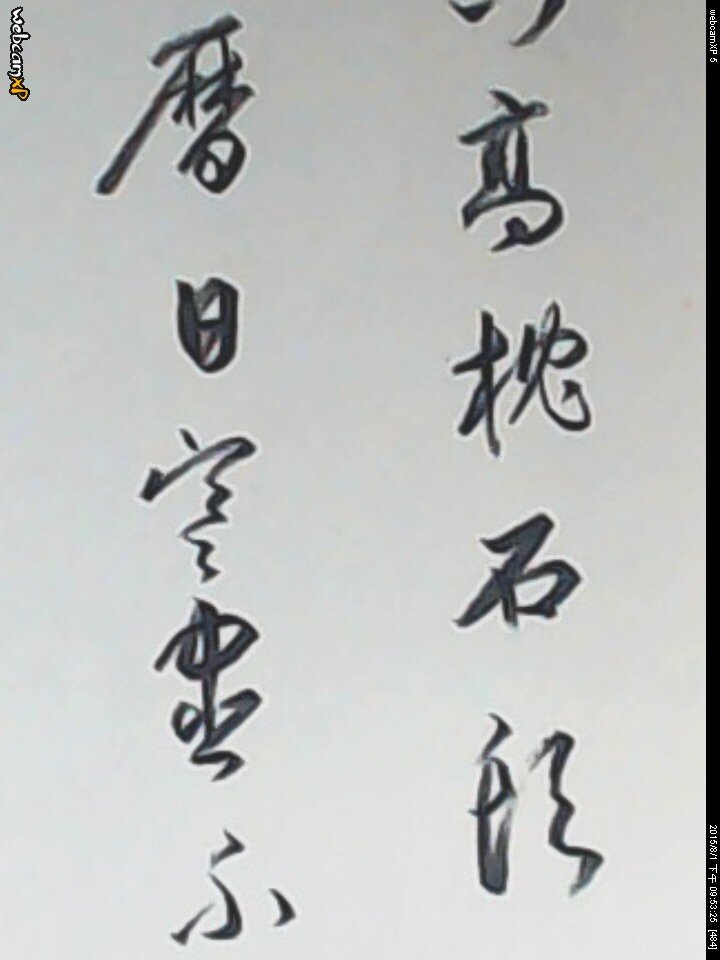 高枕石頭
曆日寒盡不
webcamXP
webcamXP 5
2015/8/1 下午 09:53:25 [484]